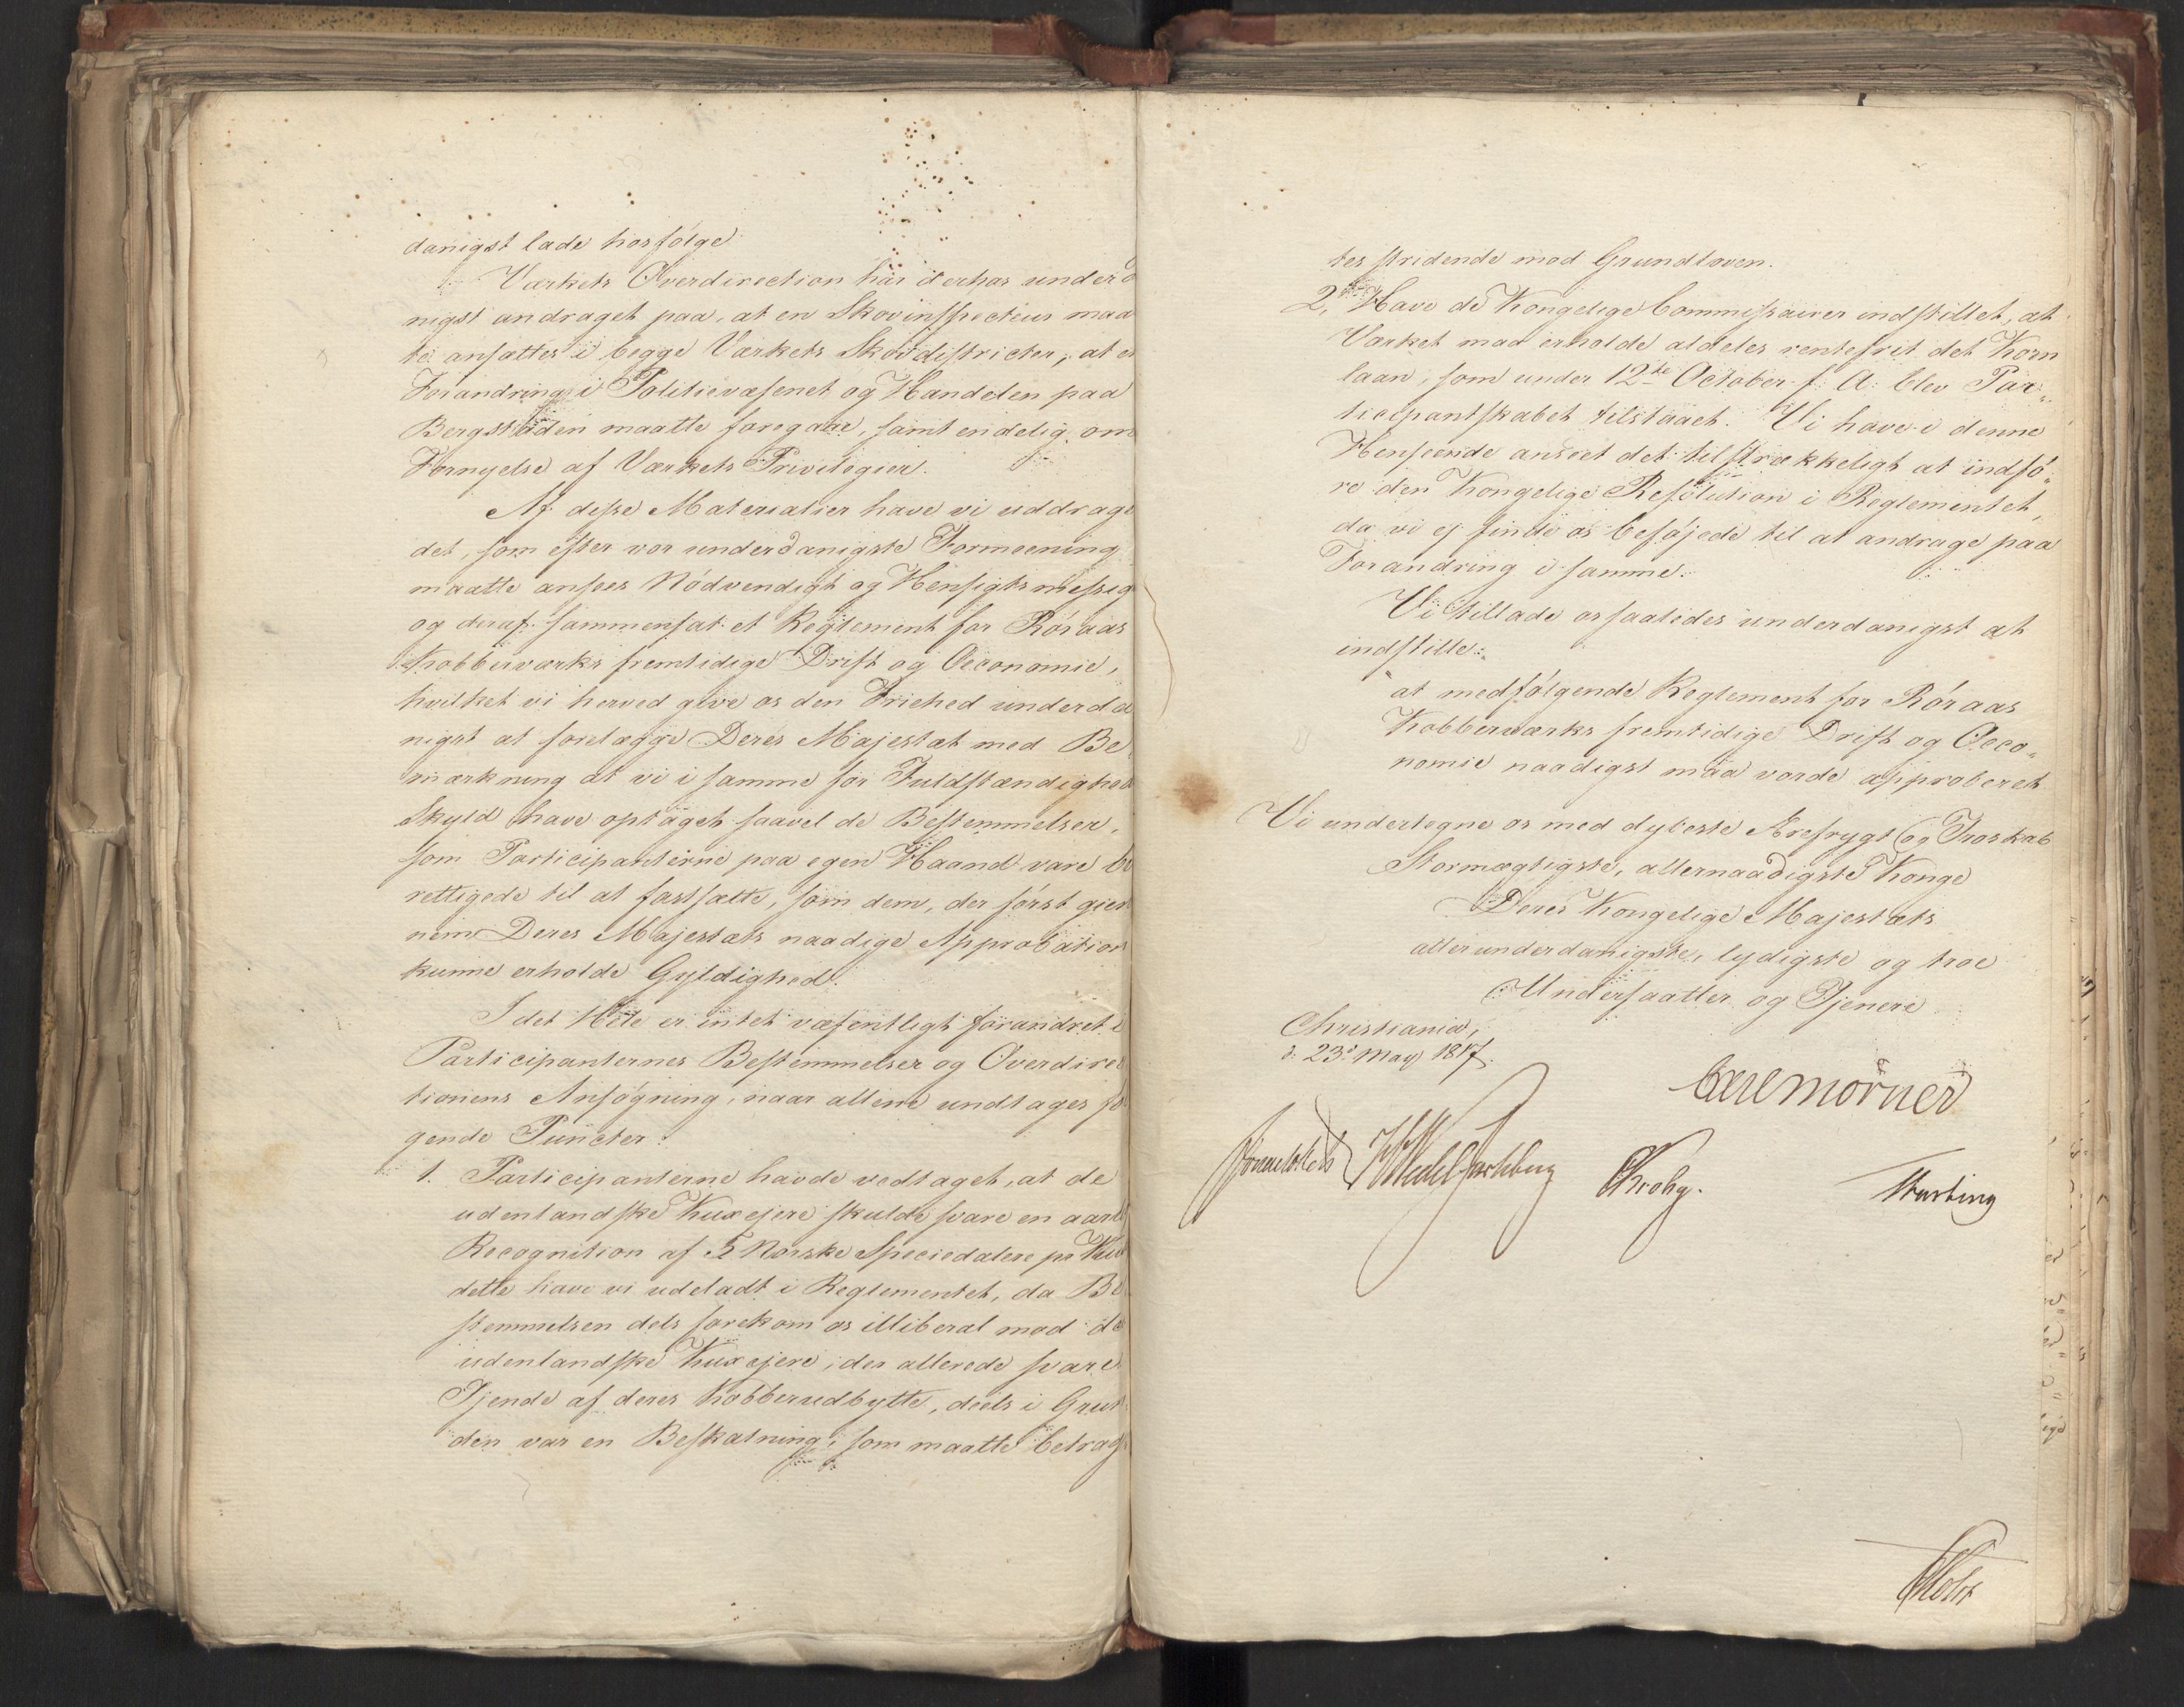 danigst lade hosfølge
Værkets Overdirection har derhos underd
nigst andraget paa, at en Skovinspecteur maa
te ansættes i begge Værkets Skovdistricter, at e
Forandring i Politievæsenet og Handelen paa
Bergstaden maatte foregaae, samt endelig om
Fornyelse af Værkets Privilegier.
Af disse Materialier have vi uddrage
det, som efter vor underdanigste Formeening
maatte ansees Nødvendigt og Hensigtsmessig
og deraf sammensat et Reglement for Røraas
Kobberværks fremtidige Drift og Oeconomie,
hvilket vi herved give os den Friehed underda
nigst at forelægge Deres Majestæt med Be
mærkning at vi i samme for Fuldstændighed
Skyld have optaget saavel de Bestemmelser,
som Participanterne paa egen Haand vare be
rettigede til at fastsætte, som dem, der først gien
nem Deres Majestæts naadige Approbation
kunne erholde Gyldighed.
I det Hele er intet væsentligt forandret i
Participanternes Bestemmelser og Overdirec
tionens Ansøgning, naar allene undtages fø
gende Puncter:
1. Participanterne havde vedtaget, at de
udenlandske Kuxejere skulde svare en aarl
Recognition af 5 Norske Speciedalere pr Kux
dette have vi udeladt i Reglementet, da Be
stemmelsen dels forekom os illiberal mod de
udenlandske Kuxejere, der allerede svare
Tjende af deres Kobberudbytte, deels i Grun
den var en Beskatning, som maatte betrag
tes stridende mod Grundloven.
2, Have de Kongelige Commissairer indstillet, at
Værket maa erholde aldeles rentefrit det Korn
laan, som under 12te October f. A. blev Par„
ticipantskabet tilstaaet. Vi have i denne
Henseende anseet det tilstrækkeligt at indfø„
re den Kongelige Resolution i Reglementet,
da vi ej finde os beføjede til at andrage paa
Forandring i samme.
Vi tillade os saaledes underdanigst at
indstille:
at medfølgende Reglement for Røraas
Kobberværks fremtidige Drift og Oeco„
nomie naadigst maa vorde approberet
Vi undertegne os med dybeste Ærefrygt og Troskab
Stormægtigste, allernaadigste Konge
Deres Kongelige Majestæts
allerunderdanigste, lydigste og troe
Undersaatter og Tjenere
Christiania,
d: 23d May 1817.
Carl Mörner
Sommerhielm HWedel Jarlsberg CKrohg. Motzfeldt
Holst